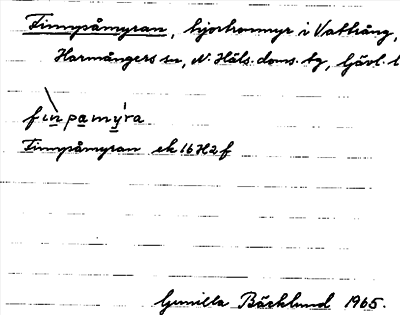 Finnpåmyran, hjortronmyr i Vattrång,
Harmångers sn, N. Häls. doms. tg, Gävl. l
fìnpamýra
Finnpåmyran ek 16H2f
Gunilla Bäcklund 1965.